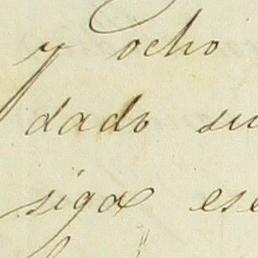 y ocho
dado su
siga ese